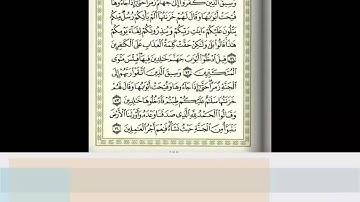 وَسِيقَ ٱلَّذِينَ كَفَرُوٓا۟ إِلَىٰ جَهَنَّمَ زُمَرًا حَتَّىٰٓ إِذَا جَآءُوهَا
فُتِحَتْ أَبْوَٰبُهَا وَقَالَ لَهُمْ خَزَنَتُهَآ أَلَمْ يَأْتِكُمْ رُسُلٌ مِّنكُمْ
يَتْلُونَ عَلَيْكُمْ ءَايَٰتِ رَبِّكُمْ وَيُنذِرُونَكُمْ لِقَآءَ يَوْمِكُمْ
هَٰذَا قَالُوا۟ بَلَىٰ وَلَٰكِنْ حَقَّتْ كَلِمَةُ ٱلْعَذَابِ عَلَى ٱلْكَٰفِرِينَ
٧١ قِيلَ ٱدْخُلُوٓا۟ أَبْوَٰبَ جَهَنَّمَ خَٰلِدِينَ فِيهَا فَبِئْسَ مَثْوَى
ٱلْمُتَكَبِّرِينَ ٧٢ وَسِيقَ ٱلَّذِينَ ٱتَّقَوْا۟ رَبَّهُمْ إِلَى
ٱلْجَنَّةِ زُمَرًا حَتَّىٰٓ إِذَا جَآءُوهَا وَفُتِحَتْ أَبْوَٰبُهَا وَقَالَ لَهُمْ
خَزَنَتُهَا سَلَٰمٌ عَلَيْكُمْ طِبْتُمْ فَٱدْخُلُوهَا خَٰلِدِينَ ٧٣
وَقَالُوا۟ ٱلْحَمْدُ لِلَّهِ ٱلَّذِى صَدَقَنَا وَعْدَهُۥ وَأَوْرَثَنَا ٱلْأَرْضَ
نَتَبَوَّأُ مِنَ ٱلْجَنَّةِ حَيْثُ نَشَآءُ فَنِعْمَ أَجْرُ ٱلْعَٰمِلِينَ ٧٤